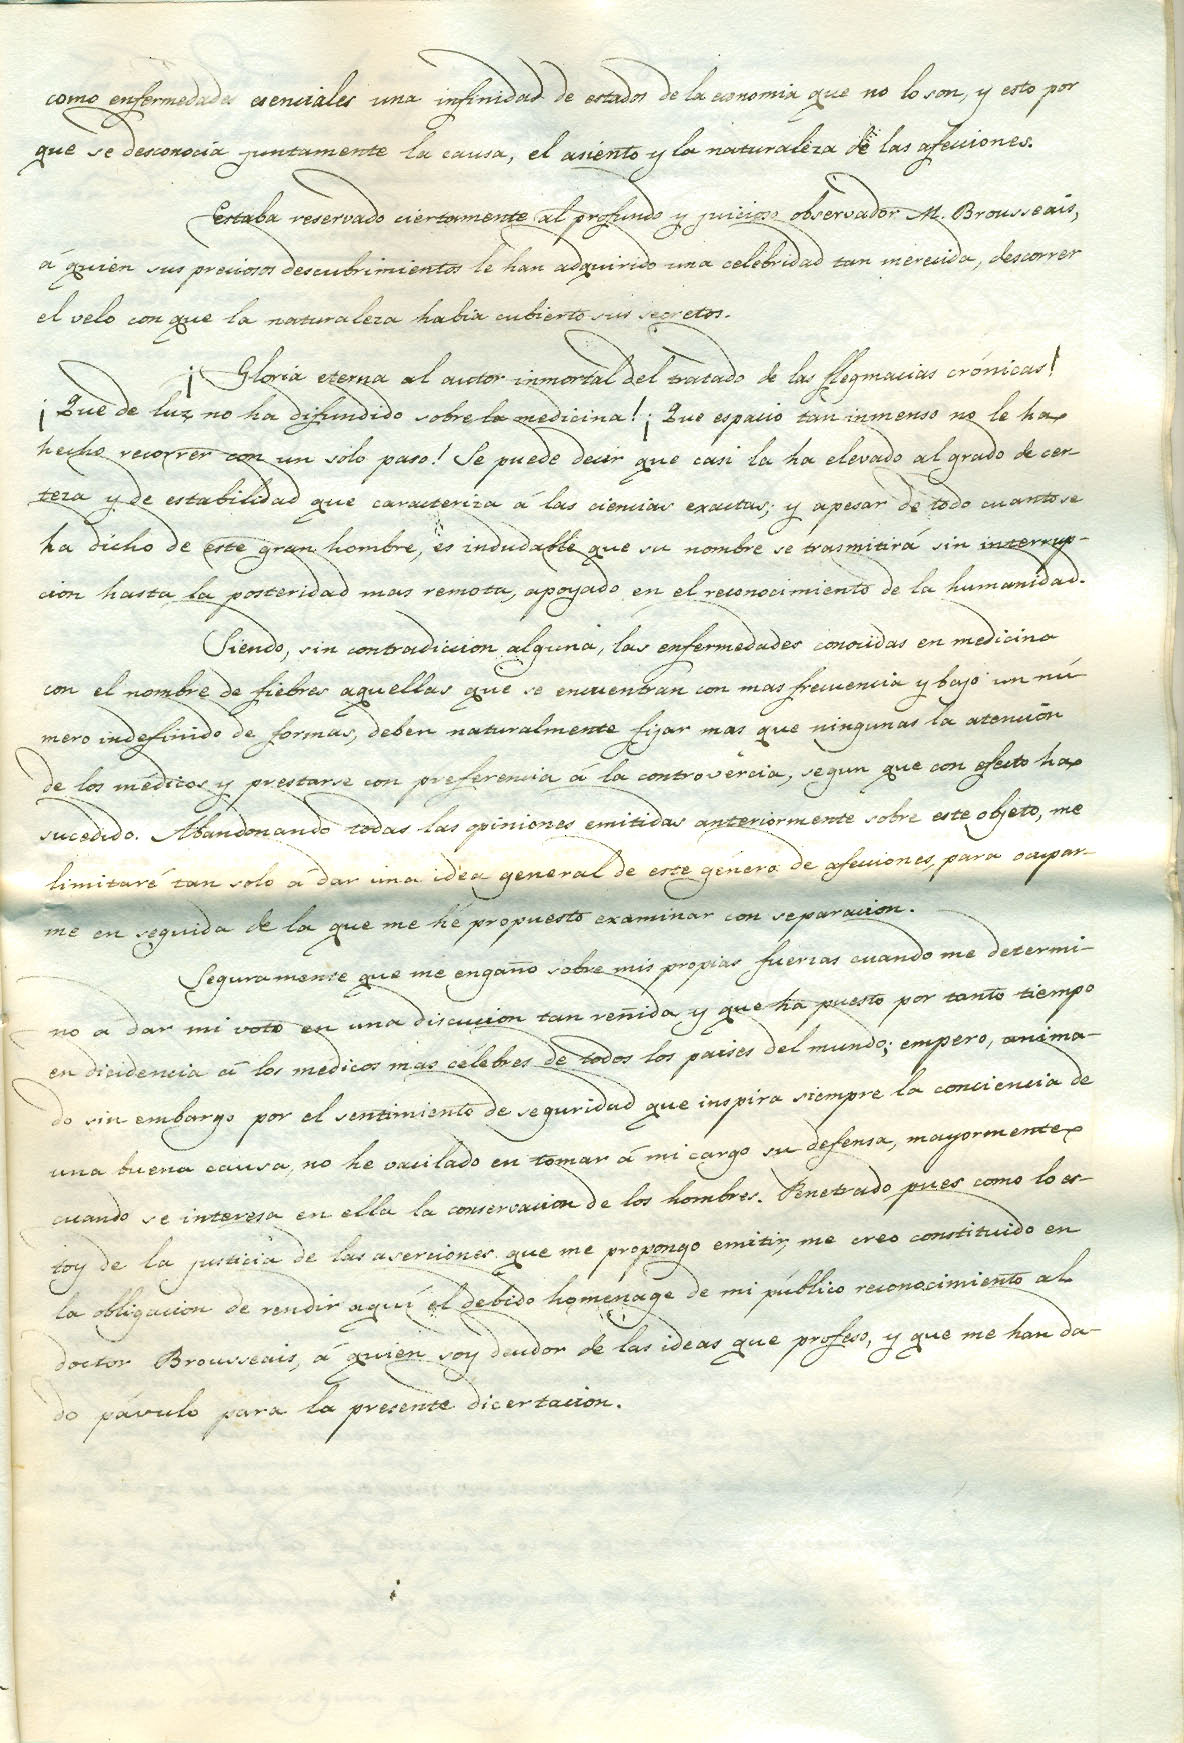 como enfermedades esenciales una infinidad de estados de la economia que no lo son, y esto por
que se desconocia juntamente la causa, el asiento y la naturaleza de las afecciones.
Estaba reservado ciertamente al profundo y juicioso observador M. Brousseais,
á quien sus preciosos descubrimientos le han adquirido una celebridad tan merecida, descorrer
el velo con que la naturaleza habia cubierto sus secretos.
¡Gloria eterna al autor inmortal del tratado de las flegmacias crónicas!
¡Que de luz no ha difundido sobre la medicina! ¡Que espacio tan inmenso no le ha
hecho recorrer con un solo paso! Se puede decir que casi la ha elevado al grado de cer-
teza y de estabilidad que caracteriza á las ciencias exactas; y apesar de todo cuanto se
ha dicho de este gran hombre, es indudable que su nombre se trasmitirá sin interrup-
cion hasta la posteridad mas remota, apoyado en el reconocimiento de la humanidad.
Siendo, sin contradiccion alguna, las enfermedades conocidas en medicina
con el nombre de fiebres aquellas que se encuentran con mas frecuencia y bajo un nú-
mero indefinido de formas, deben naturalmente fijar mas que ningunas la atencion
de los médicos y prestarse con preferencia á la controvercia, segun que con efecto ha
sucedido. Abandonando todas las opiniones emitidas anteriormente sobre este objeto, me
limitaré tan solo á dar una idea general de este género de afecciones, para ocupar-
me en seguida de la que me hé propuesto examinar con separacion.
Seguramente que me engaño sobre mis propias fuerzas cuando me determi-
no a dar mi voto en una discucion tan reñida y que ha puesto por tanto tiempo
en dicidencia á los medicos mas célebres de todos los paises del mundo; empero, anima-
do sin embargo por el sentimiento de seguridad que inspira siempre la conciencia de
una buena causa, no he vacilado en tomar á mi cargo su defensa, mayormente
cuando se interesa en ella la conservacion de los hombres. Penetrado pues como lo es-
toy de la justicia de las aserciones que me propongo emitir, me creo constituido en
la obligacion de rendir aquí el debido homenage de mi público reconocimiento al
doctor Brousseais, á quien soy deudor de las ideas que profeso, y que me han da-
do pávulo para la presente dicertacion.